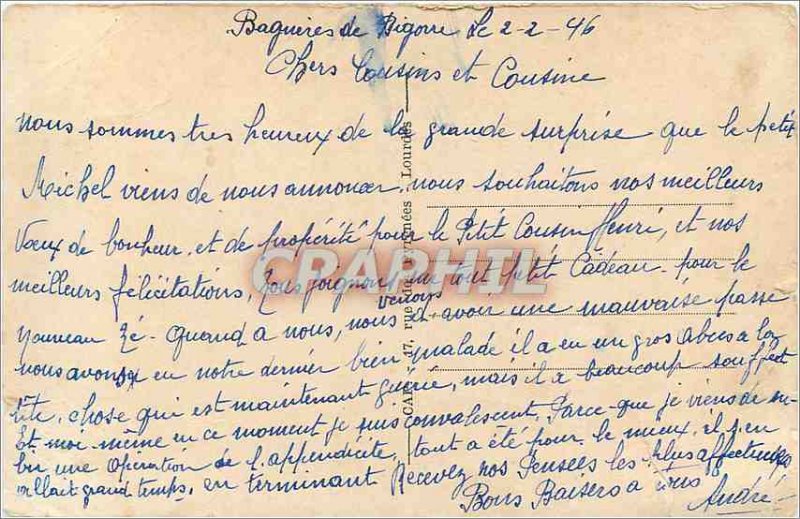 Bagnères de Bigorre Le 2-2-46
Chers Cousins et Cousine
nous sommes tres heureux de la grande surprise que le petit
Michel viens de nous annoncer, nous souhaitons nos meilleurs
Vœux de bonheur et de propérité pour le Petit Cousin Henri, et nos
meilleurs félicitations, nous joignons un tout petit Cadeau pour le
nouveau né - Quand a nous, nous venons d'avoir une mauvaise passe
nous avons eu notre dernier bien malade il a eu un gros abcès a la
tête, chose qui est maintenant guérie, mais il a beaucoup souffert
Et moi-même en ce moment je suis convalescent. Parce-que je viens de su-
bir une Opération de l'appendicite, tout a été pour le mieux, il s'en
allait grand temps, en terminant Recevez nos Pensées les Plus affectueuses
Bons Baisers a tous
André
17, rue des Pyrénées Lourdes
CRAPHIL